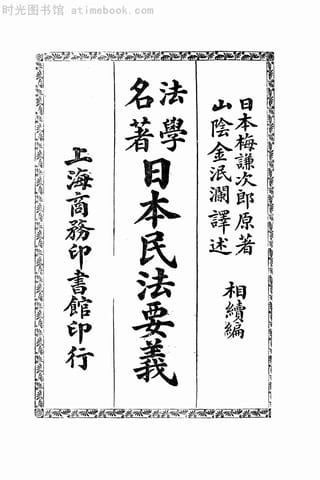 时光图书馆 - atimebook.com
日本梅謙次郎原著
山陰金泯瀾譯述
相續編
法學名著
日本民法要義
上海商務印書館印行